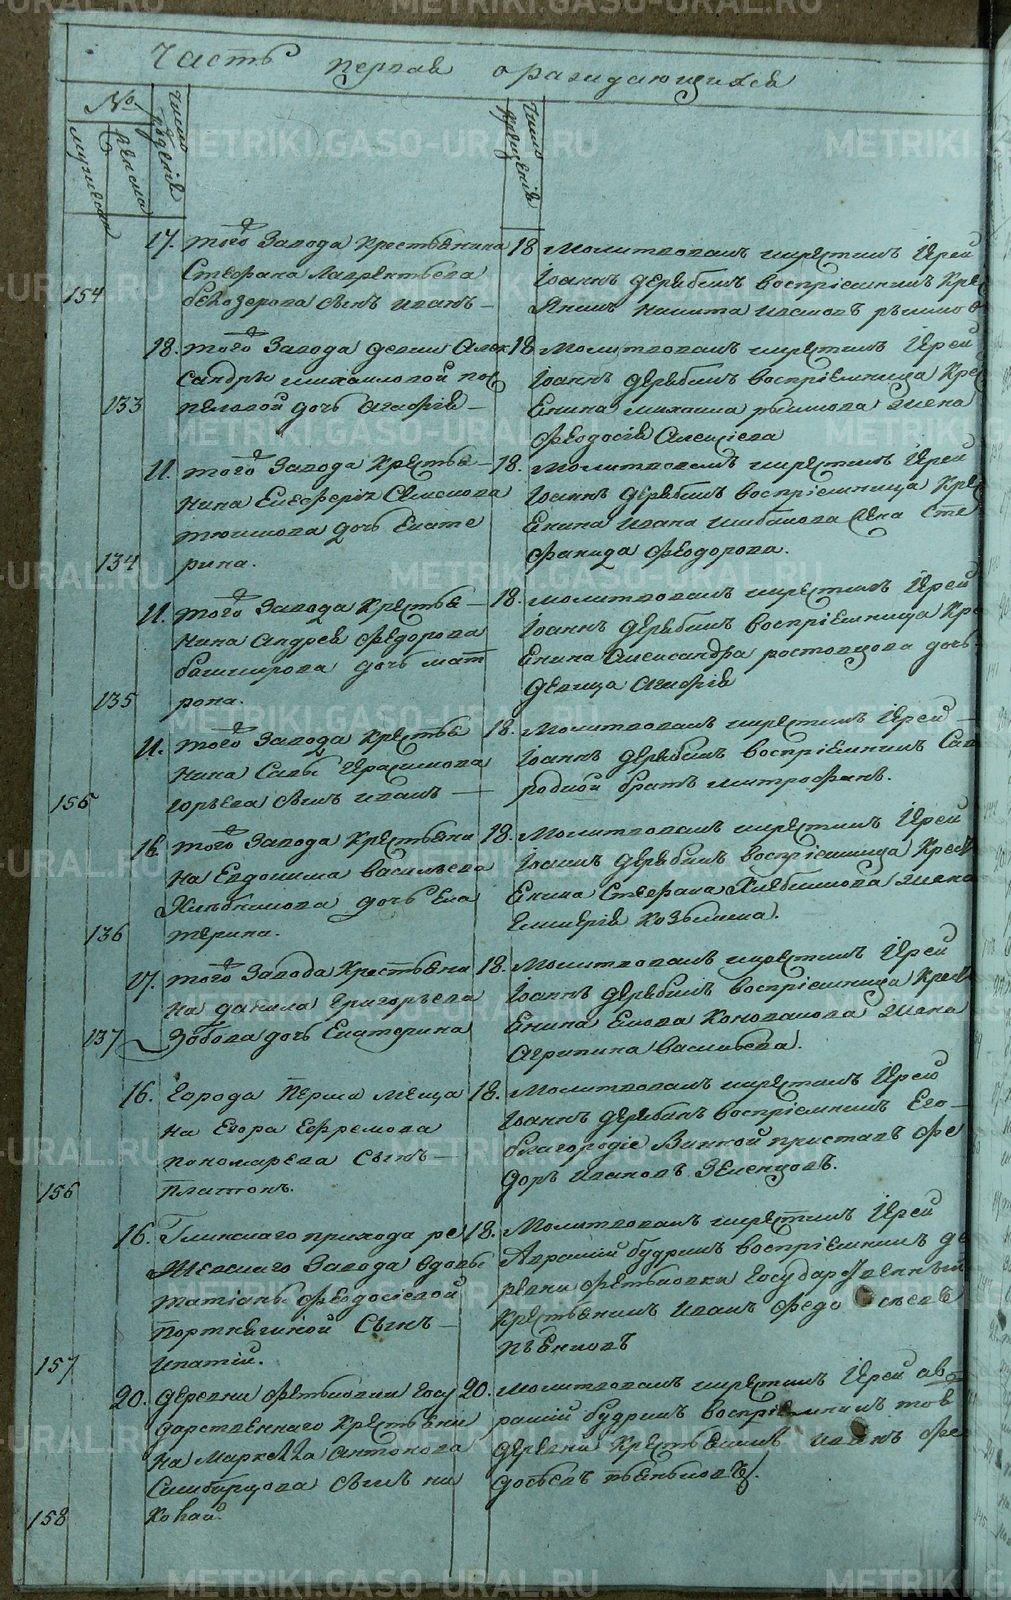 Часть первая о раждающихся
No
мужеска
женска
число рожденія
число крещенія
17. того Завода крестьянина
Стефана Лаврентьева
154 бѣлозерова сынъ иванъ
18 Молитвовалъ и крестилъ Іерей
Іоаннъ дерябинъ воспріемникъ Кре
никита ивановъ
18. того Завода девки Алек
сандры михаиловой по
133 дочь Агафія
18. Молитвовалъ и крестилъ Іерей
Іоаннъ дерябинъ воспріемница Крес
янина михаила жена
феодосія Алексіева
11. того Завода крестья
нина Елефферія
дочь Екате
134 рина.
18. Молитвовалъ и крестилъ Іерей
Іоаннъ дерябинъ воспріемница Кре
янина ивана жена Сте
фанида феодорова.
11. того Завода крестья
нина Андрея федорова
башкирова дочь мат
135 рона.
18. молитвовалъ и крестилъ Іерей
Іоаннъ дерябинъ воспріемница Кре
янина Александра ростовцова дочь
девица Агафія
11. того Завода крестья
нина Савы Герасимова
155 сынъ иванъ
18. Молитвовалъ и крестилъ Іерей
Іоаннъ дерябинъ воспріемникъ
родной братъ митрофанъ.
16. того Завода крестьяни
на Евдокима васильева
Хлебникова дочь Ека
136 терина.
18. Молитвовалъ и крестилъ Іерей
Іоаннъ дерябинъ воспріемница Крест
янина Стефана Хлебникова жена
Козьмина.
17. того Завода крестьяни
на данила григорьева
137 Зобова дочь Екатерина
18. Молитвовалъ и крестилъ Іерей
Іоаннъ дерябинъ воспріемница Крест
янина Коновалова жена
Агрипина васильева.
16. города Перми меща
на Егора Ефремова
пономарева сынъ
156 Платонъ.
18. Молитвовалъ и крестилъ Іерей
Іоаннъ дерябинъ воспріемникъ Его
благородіе Винной приставъ фе
доръ ивановъ Зеленцовъ.
16. Глинскаго прихода ре
жевскаго Завода вдовы
татіаны феодосіевой
портнягиной Сынъ
157 ипатій.
18. Молитвовалъ и крестилъ Іерей
Аврамій будринъ воспріемникъ де
ревни Государственный
крестьянинъ иванъ
20. деревни Госу
дарственнаго крестьяни
на Маркелла Антонова
сынъ ни
158 колай.
20. молитвовалъ и крестилъ Іерей ав
рамій будринъ воспріемникъ тоя
деревни крестьянинъ иванъ фео
досьевъ